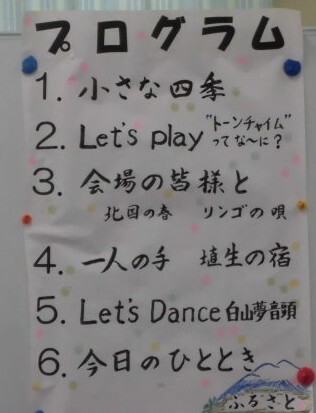 プログラム
1. 小さな四季
2. Let's play "トーンチャイム"
ってな〜に?
3. 会場の皆様と
北国の春 リンゴの唄
4. 一人の手 埴生の宿
5. Let's Dance 白山夢音頭
6. 今日のひととき
ふるさと